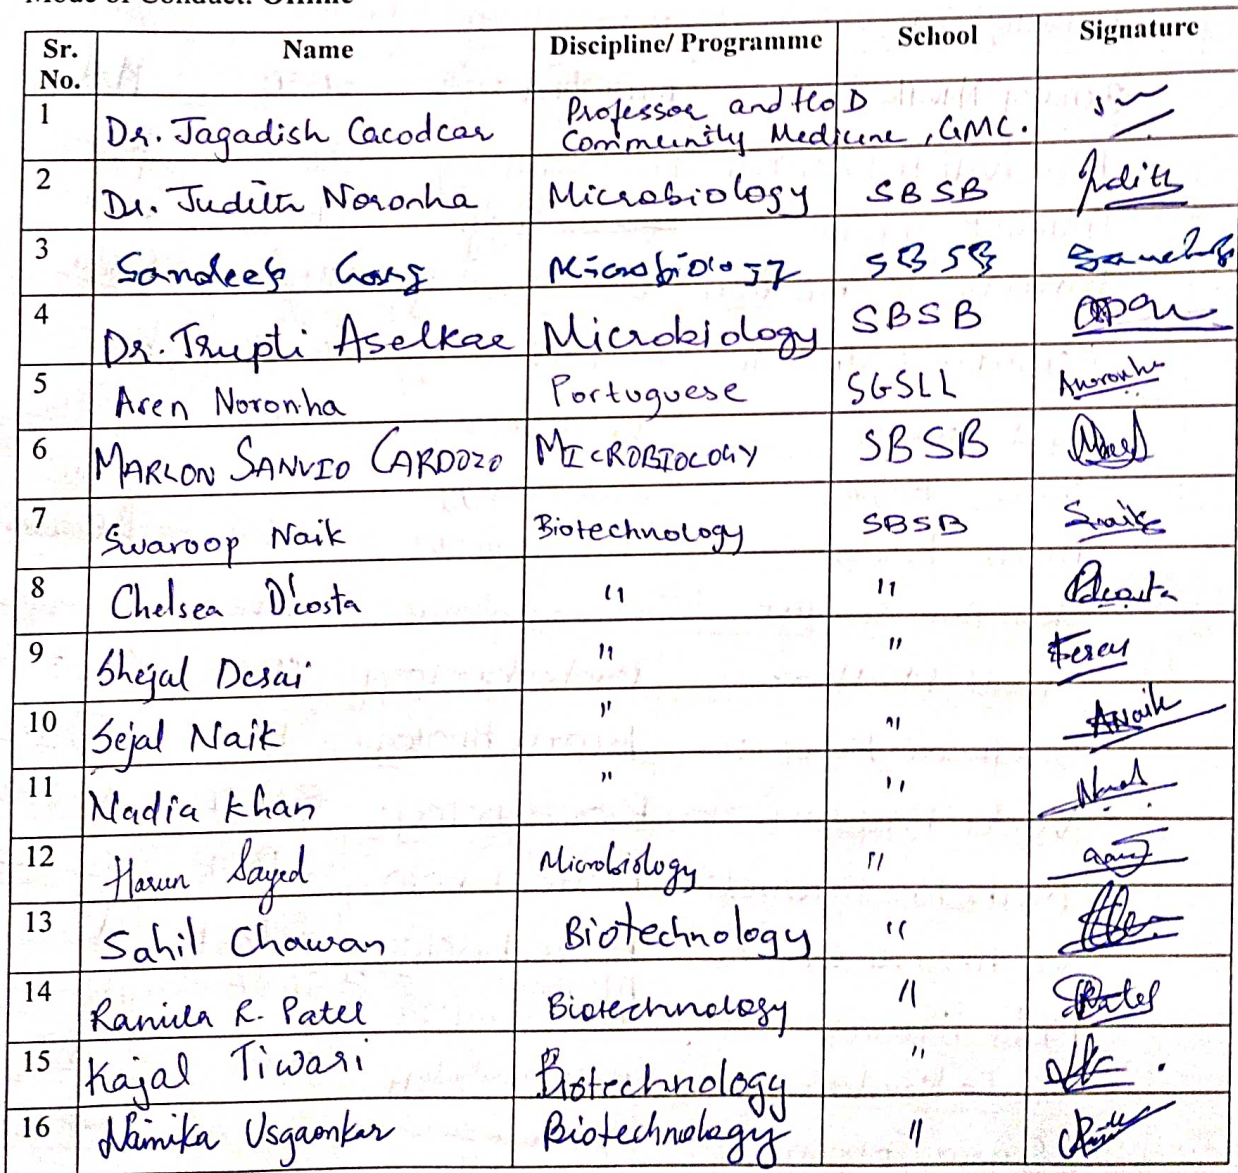 Mode of Conduct: Offline
Sr. No. Name Discipline/ Programme School Signature
1 Dr. Jagadish Cacodcar Professor and HoD Community Medicine, GMC.
2 Dr. Judith Noronha Microbiology SBSB Judith
3 Sandeep Garg Microbiology SBSB
4 Dr. Trupti Aselkar Microbiology SBSB
5 Aren Noronha Portuguese SGSLL Anoronha
6 MARLON SANVIO CARDOZO MICROBIOLOGY SBSB
7 Swaroop Naik Biotechnology SBSB Snaik
8 Chelsea D'costa " "
9 Shejal Desai " "
10 Sejal Naik " " ANaik
11 Nadia Khan " "
12 Harun Sayed Microbiology "
13 Sahil Chawan Biotechnology "
14 R. Patel Biotechnology "
15 Kajal Tiwari Biotechnology "
16 Namika Usgaonkar Biotechnology "